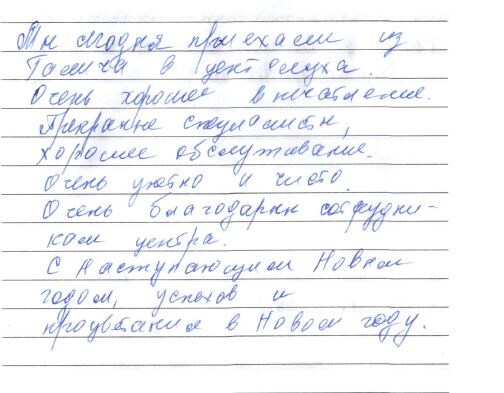 Мы сегодня приехали из
Галича в центр слуха.
Очень хорошее впечатление.
Прекрасные специалисты,
хорошее обслуживание.
Очень уютно и чисто.
Очень благодарны сотрудни-
кам центра.
С наступающим Новым
годом, успехов и
процветания в Новом году.